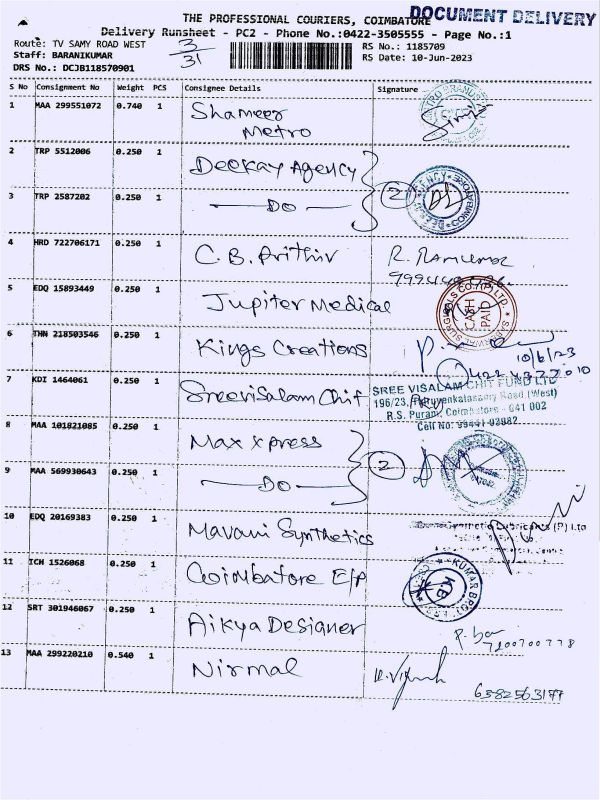 THE PROFESSIONAL COURIERS, COIMBATORE
DOCUMENT DELIVERY
Delivery Runsheet - PC2 - Phone No.:0422-3505555 - Page No.:1
Route: TV SAMY ROAD WEST
3/31
RS No.: 1185709
Staff: BARANIKUMAR
RS Date: 10-Jun-2023
DRS No.: DCJB118570901
S No Consignment No Weight PCS Consignee Details Signature
1 MAA 299551072 0.740 1 Shameer
Metro
2 TRP 5512006 0.250 1 Deekay Agency
3 TRP 2587202 0.250 1 — DO — 2
4 HRD 722706171 0.250 1 C.B. Prithiv
5 EDQ 15893449 0.250 1 Jupiter Medical
CASH
PAID
6 THN 218503546 0.250 1 Kings Creations
10/6/23
7 KDI 1464061 0.250 1 Sreevisalam Chit
SREE VISALAM CHIT FUND LTD
R.S. Puram, Coimbatore - 641 002
8 MAA 101821085 0.250 1 Max xpress
9 MAA 569930643 0.250 1 — DO — 2
10 EDQ 20169383 0.250 1 Mavani Synthetics
11 ICH 1526068 0.250 1 Coimbatore E/P
12 SRT 301946067 0.250 1 Aikya Designer
7200700778
13 MAA 299220210 0.540 1 Nirmal